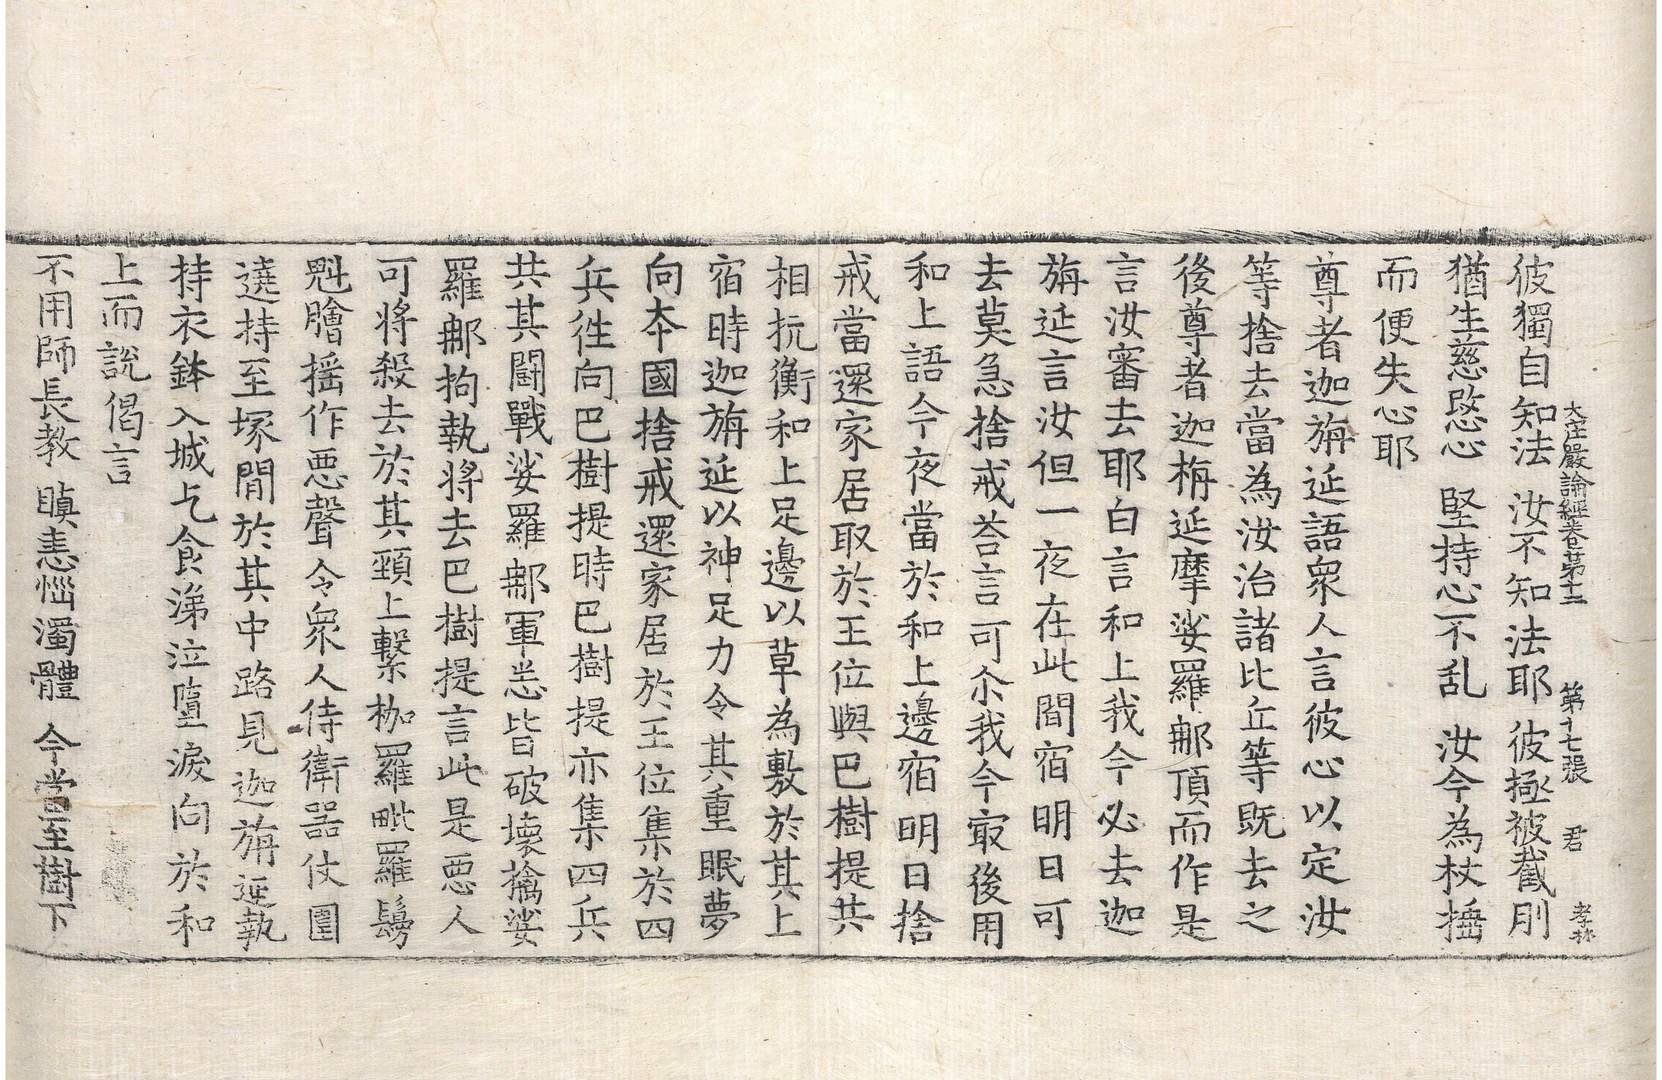 大庄嚴論經卷苐十二 第十七張 君 孝林
彼獨自知法 汝不知法耶 彼極被截刖
猶生慈愍心 堅持心不乱 汝今為杖捶
而便失心耶
尊者迦旃延語衆人言彼心以定汝
等捨去當為汝治諸比丘等既去之
後尊者迦栴延摩娑羅𨙻頂而作是
言汝審去耶白言和上我今必去迦
旃延言汝但一夜在此間宿明日可
去莫急捨戒荅言可尒我今㝡後用
和上語今夜當於和上邊宿明日捨
戒當還家居取於王位與巴樹提共
相抗衡和上足邊以草為敷於其上
宿時迦旃延以神足力令其重眠夢
向夲國捨戒還家居於王位集於四
兵徃向巴樹提時巴樹提亦集四兵
共其鬪戰娑羅𨙻軍悉皆破壞擒娑
羅𨙻拘執將去巴樹提言此是惡人
可將殺去於其頸上繫枷羅毗羅鬘
魁膾揺作惡聲令衆人侍衛器仗圍
遶持至塚閒於其中路見迦旃延執
持衣鉢入城乞食涕泣墮淚向於和
上而說偈言
不用師長教 瞋恚惱濁體 今當至樹下